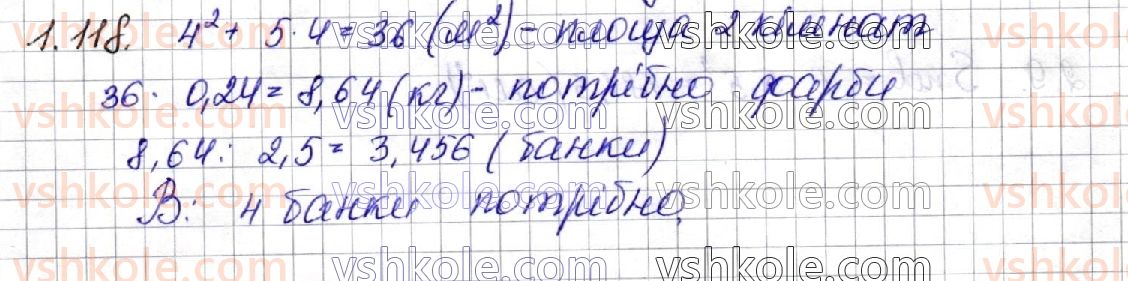 1.118. 4² + 5·4 = 36 (м²) - площа 2 кімнат
36 · 0,24 = 8,64 (кг) - потрібно фарби
8,64 : 2,5 = 3,456 (банки)
В: 4 банки потрібно.
vshkole.com vshkole.com vshkole.com vshkole.com
vshkole.com vshkole.com vshkole.com vshkole.com
vshkole.com vshkole.com vshkole.com vshkole.com
vshkole.com vshkole.com vshkole.com vshkole.com